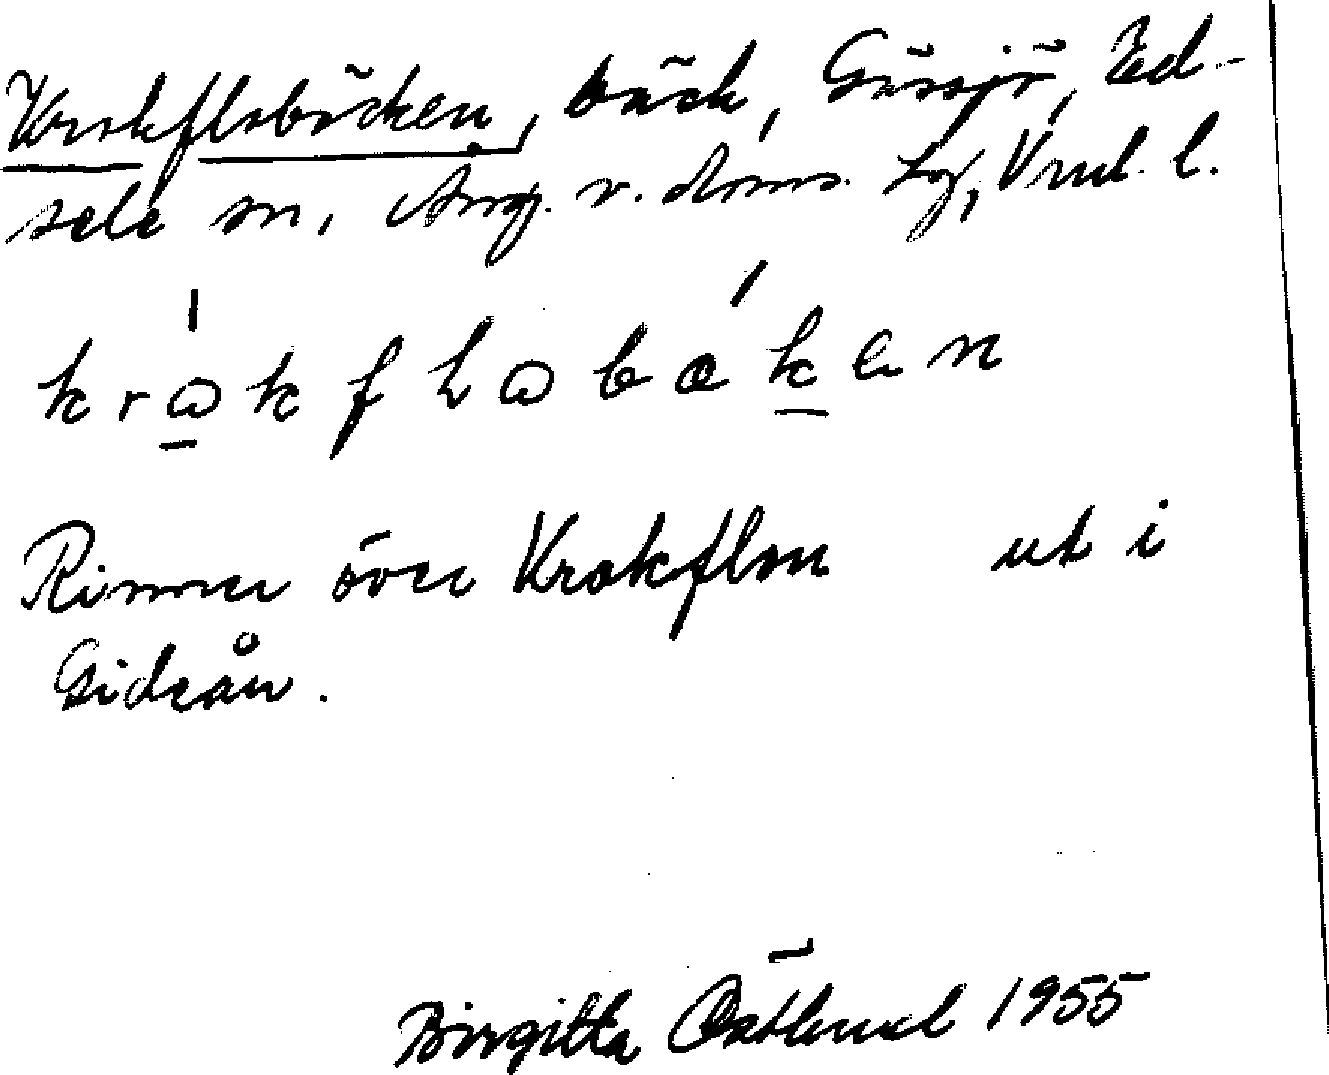 Krokflobäcken, bäck, Gässjö, Ed-
sele sn, Ång. v. doms. Lfs, Vnl. l.
krɷkflɷbæken
Rinner över Krokflon ut i
Gideån.
Birgitta Östlund 1955